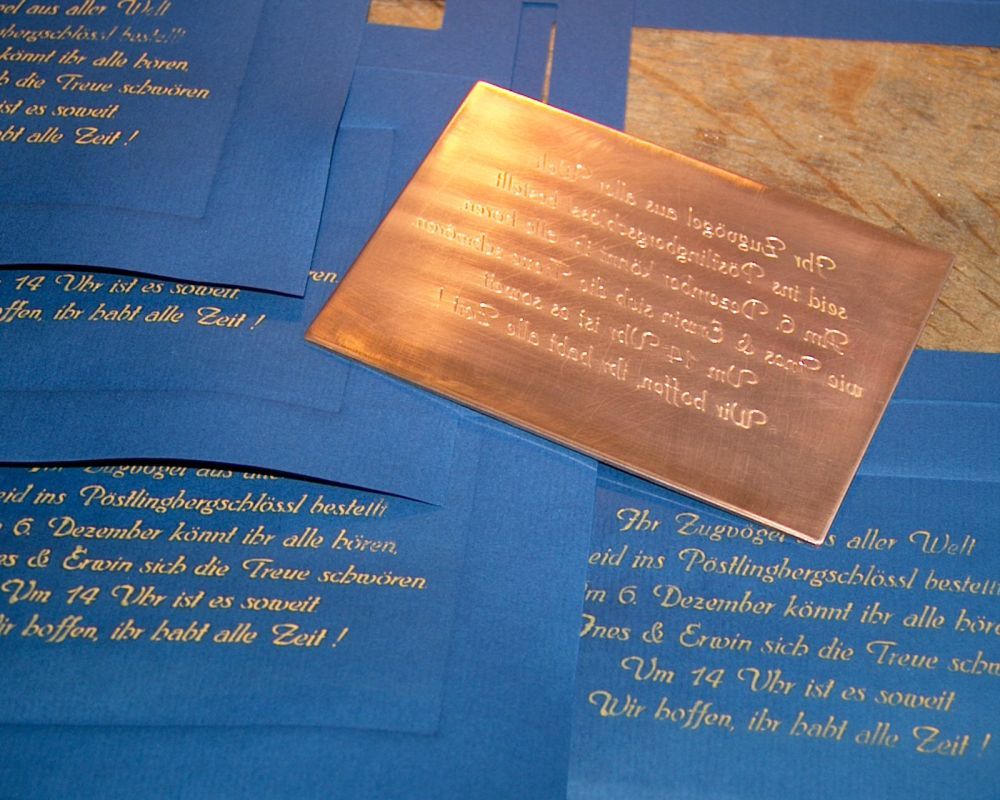 el aus aller Welt
gbergschlössl bestellt
könnt ihr alle hören,
h die Treue schwören
ist es soweit
abt alle Zeit !
ren.
14 Uhr ist es soweit
offen, ihr habt alle Zeit !
Ihr Zugvögel aus alle
eid ins Pöstlingbergschlössl bestellt
6. Dezember könnt ihr alle hören,
nes & Erwin sich die Treue schwören
Um 14 Uhr ist es soweit
ir hoffen, ihr habt alle Zeit !
Ihr Zugvögel aus aller Welt
seid ins Pöstlingbergschlössl bestellt
Am 6. Dezember könnt ihr alle hören,
wie Ines & Erwin sich die Treue schwören
Um 14 Uhr ist es soweit
Wir hoffen, ihr habt alle Zeit !
Ihr Zugvögel aus aller Welt
eid ins Pöstlingbergschlössl bestellt
m 6. Dezember könnt ihr alle höre
Ines & Erwin sich die Treue schw
Um 14 Uhr ist es soweit
Wir hoffen, ihr habt alle Zeit !